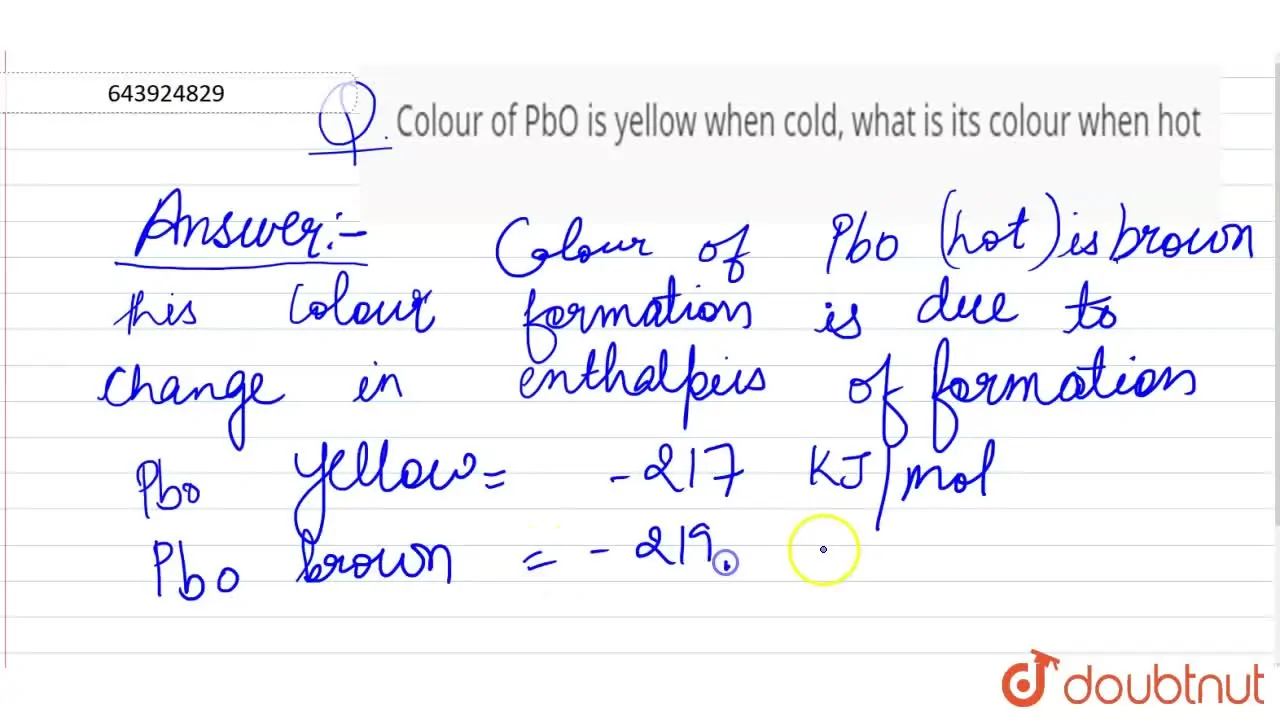 643924829
Q. Colour of PbO is yellow when cold, what is its colour when hot
Answer:- Colour of PbO (hot) is brown
this colour formation is due to
change in enthalpeis of formation
Pbo yellow = -217 KJ/mol
PbO brown = -219.
doubtnut